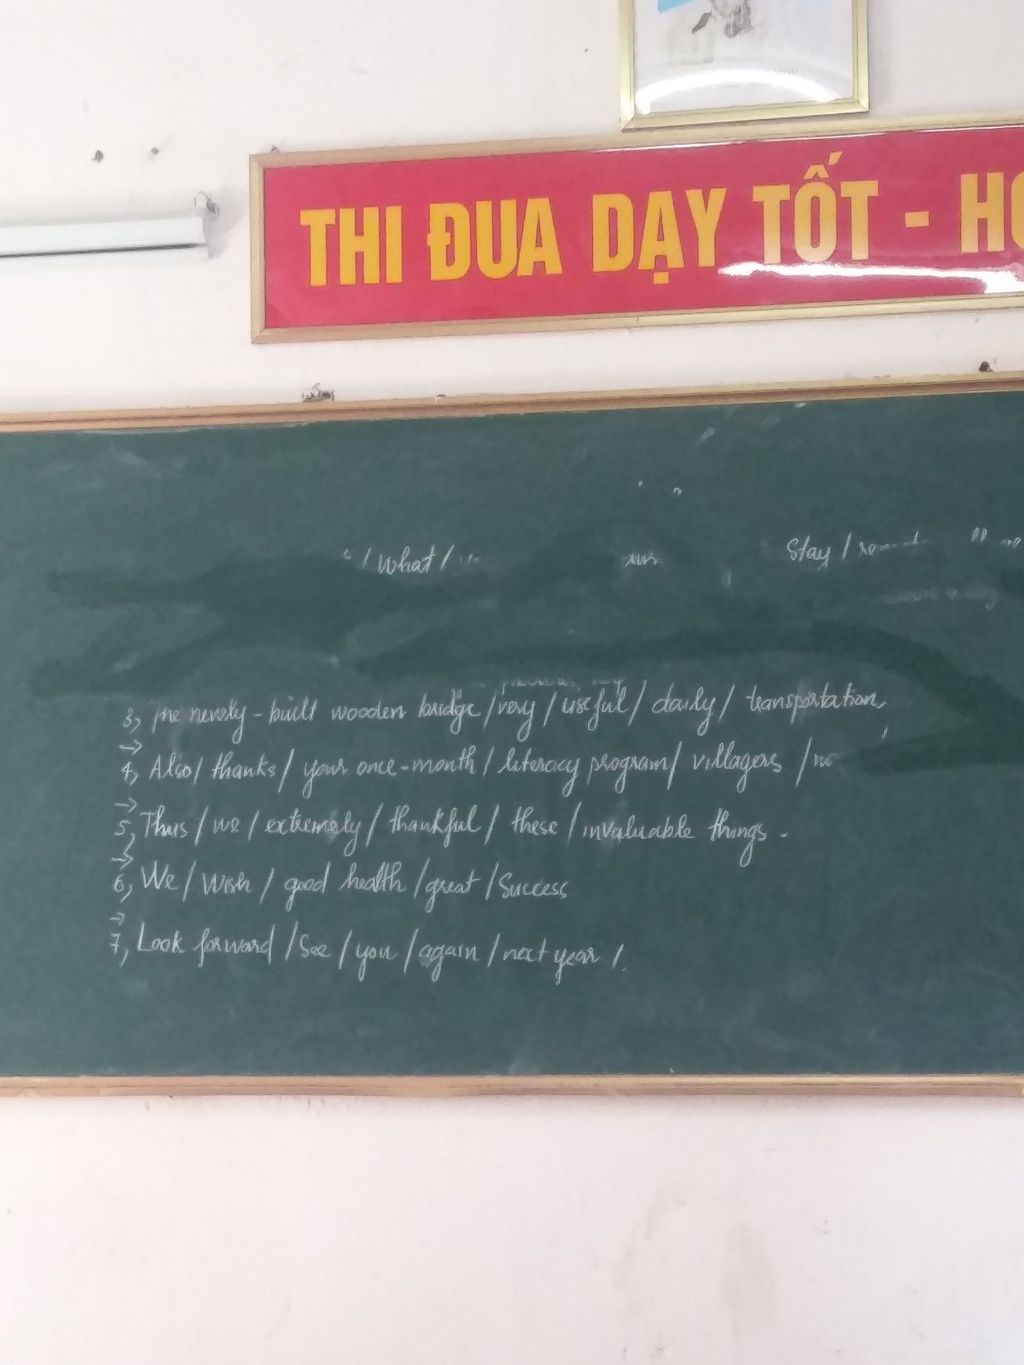 THI ĐUA DẠY TỐT - HỌ
/ What /
Stay /
3, The newly - built wooden bridge / very / useful / daily / transportation
→
4, Also / thanks / your once-month / literacy program / villagers /
→
5, Thus / we / extremely / thankful / these / invaluable things.
→
6, We / Wish / good health / great / Success
→
7, Look forward / See / you / again / next year /.